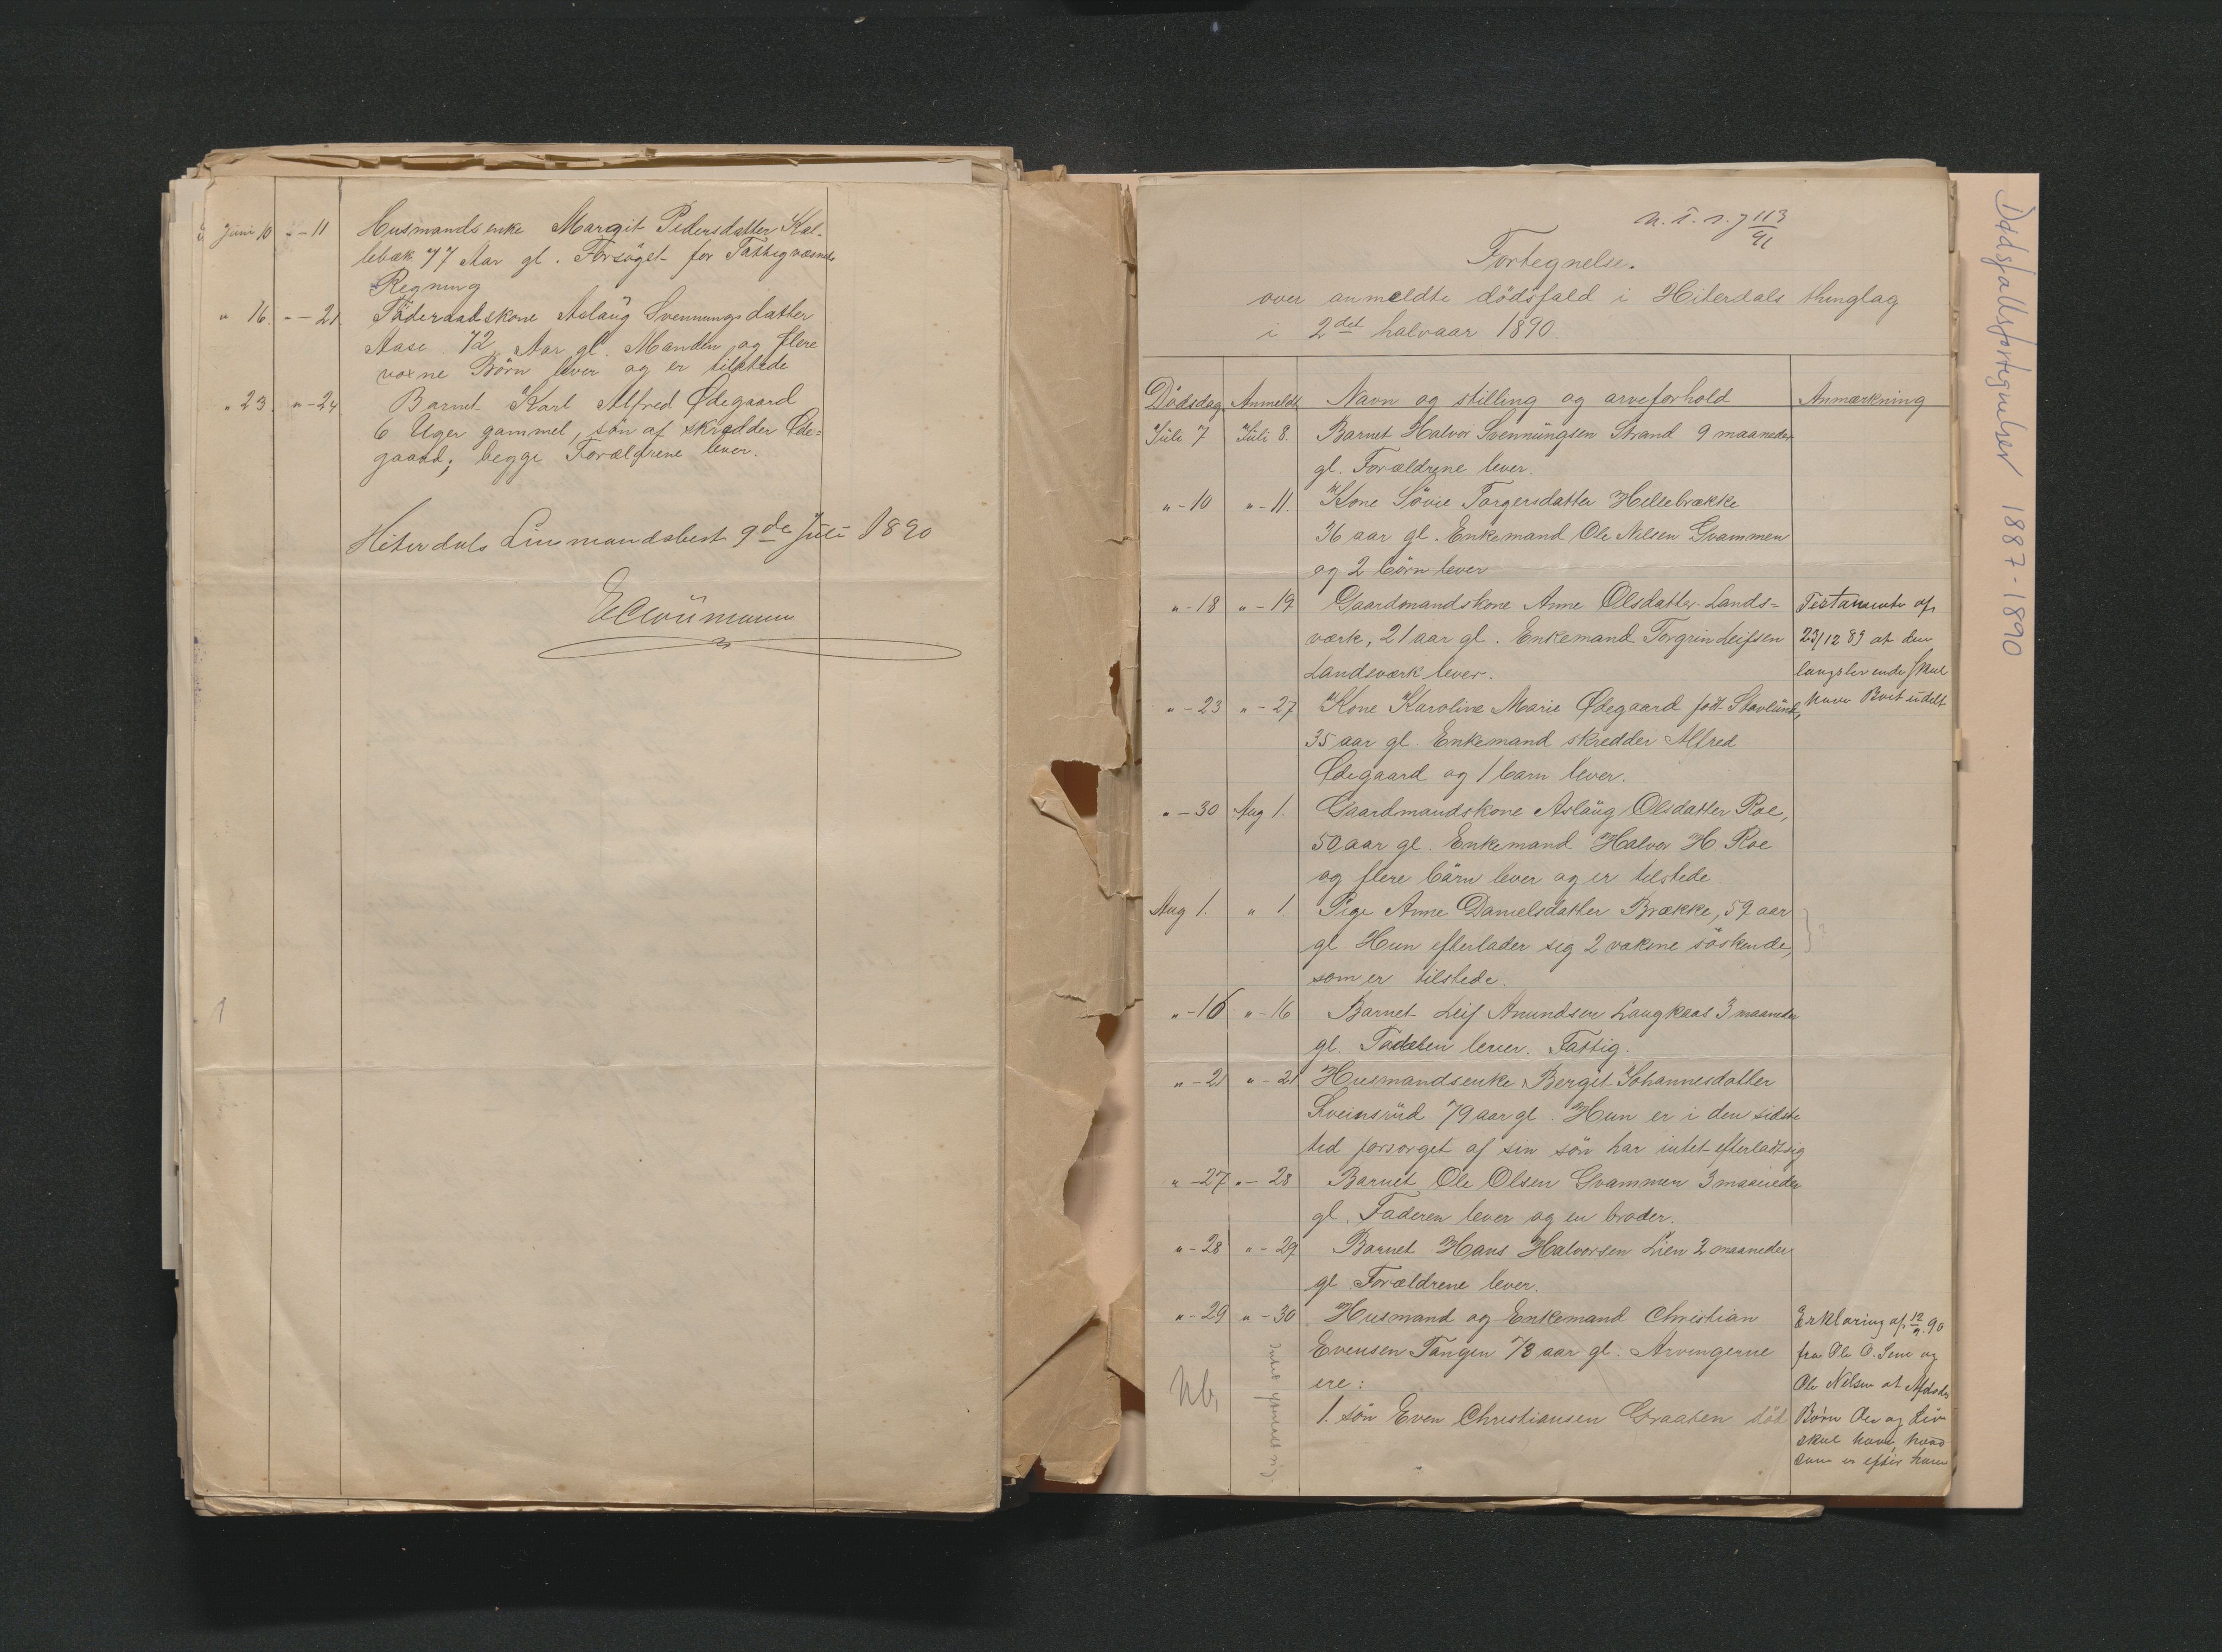 Juni 10 " - 11 Husmandsenke Margit Pedersdatter Kal-
lebæk 77 Aar gl. Forsöget for Fattigvæsnets
Regning
" 16. " - 21. Föderaadskone Aslaug Svennungsdatter
Aase 72 Aar gl. Manden og flere
voxne Börn lever og er tilstede
" 23. " - 24 Barnet Karl Alfred Ødegaard
6 Uger gammel, sön af skrædder Øde=
gaard; begge Forældrene lever.
Hiterdals Linsmandsbest 9de Juli 1890
1
113
91
Fortegnelse.
over anmeldte dödsfald i Hiterdals thinglag
i 2det halvaar 1890.
Dödsdag Anmeldt Navn og stilling og arveforhold Anmærkning
Juli 7 Juli 8. Barnet Halvor Svennungsen Strand 9 maaneder
gl. Forældrene lever.
" - 10 " - 11. Kone Sövie Torgersdatter Hellebrække
36 aar gl. Enkemand Ole Nilsen Gvammen
og 2 börn lever
" - 18 " - 19 Gaardmandskone Anne Olsdatter Lands= Testamente af
værk, 21 aar gl. Enkemand Torgrin Leifsen 23/12 89 at den
Landsværk lever. længstlevende skal
" - 23 " - 27 Kone Karoline Marie Ødegaard föd Stavlund, have Boet udelt
35 aar gl. Enkemand skredder Alfred
Ødegaard og 1 barn lever.
" - 30 Aug 1. Gaardmandskone Aslaug Olsdatter Roe,
50 aar gl. Enkemand Halvor H. Roe
og flere börn lever og er tilstede
Aug 1. " 1. Pige Anne Danielsdatter Brække, 59 aar
gl. Hun efterlader sig 2 voksne söskende, ?
som er tilstede.
" - 16 " - 16 Barnet Leif Amundsen Langkaas 3 maaneder
gl. Faderen lever. Fattig.
" - 21 " - 21 Husmandsenke Bergit Johannesdatter
Sveinsrud 79 aar gl. Hun er i den sidste
tid forsorget af sin sön har intet efterladt sig
" - 27 " - 28 Barnet Ole Olsen Gvammen 3 maaneder
gl. Faderen lever og en broder.
" - 28 " - 29 Barnet Hans Halvorsen Lien 2 maaneder
gl Forældrene lever.
" - 29 " - 30 Husmand og Enkemand Christian Erklæring af 12/9 90
Evensen Tangen 78 aar gl. Arvingerne fra Ole O. Sem og
Nb. ere: Ole Nilsen at Afdødes
1. sön Even Christiansen Graaten död Børn Ole og Liv
skal have, hvad
som er efter ham
Intet efterladt sig.
Dødsfallsfortegnelser 1887-1890